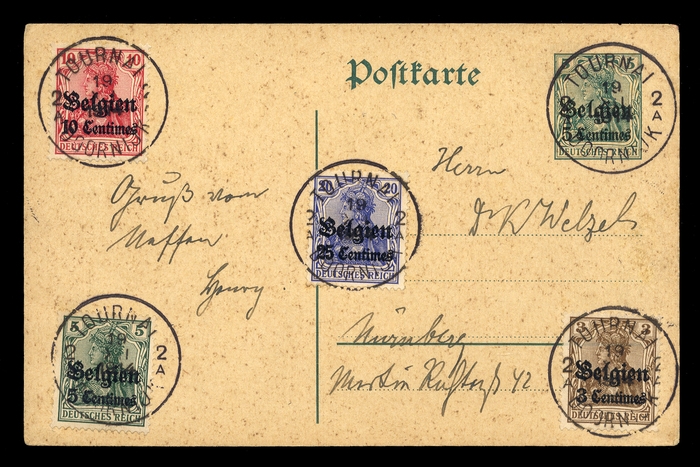 Postkarte
10 10
Belgien
10 Centimes
DEUTSCHES REICH
TOURNAI
19
2
DOORNIK
5 5
Belgien
5 Centimes
DEUTSCHES REICH
TOURNAI
19
2 A
DOORNIK
Gruß vom
Neffen
Henry
20 20
Belgien
25 Centimes
DEUTSCHES REICH
TOURNAI
19
2 2
A A
DOORNIK
Herrn
Dr K Welzel
Nürnberg
42
5 5
Belgien
5 Centimes
DEUTSCHES REICH
TOURNAI
19
2
A
3 3
Belgien
3 Centimes
DEUTSCHES REICH
TOURNAI
19
2
A
DOORNIK